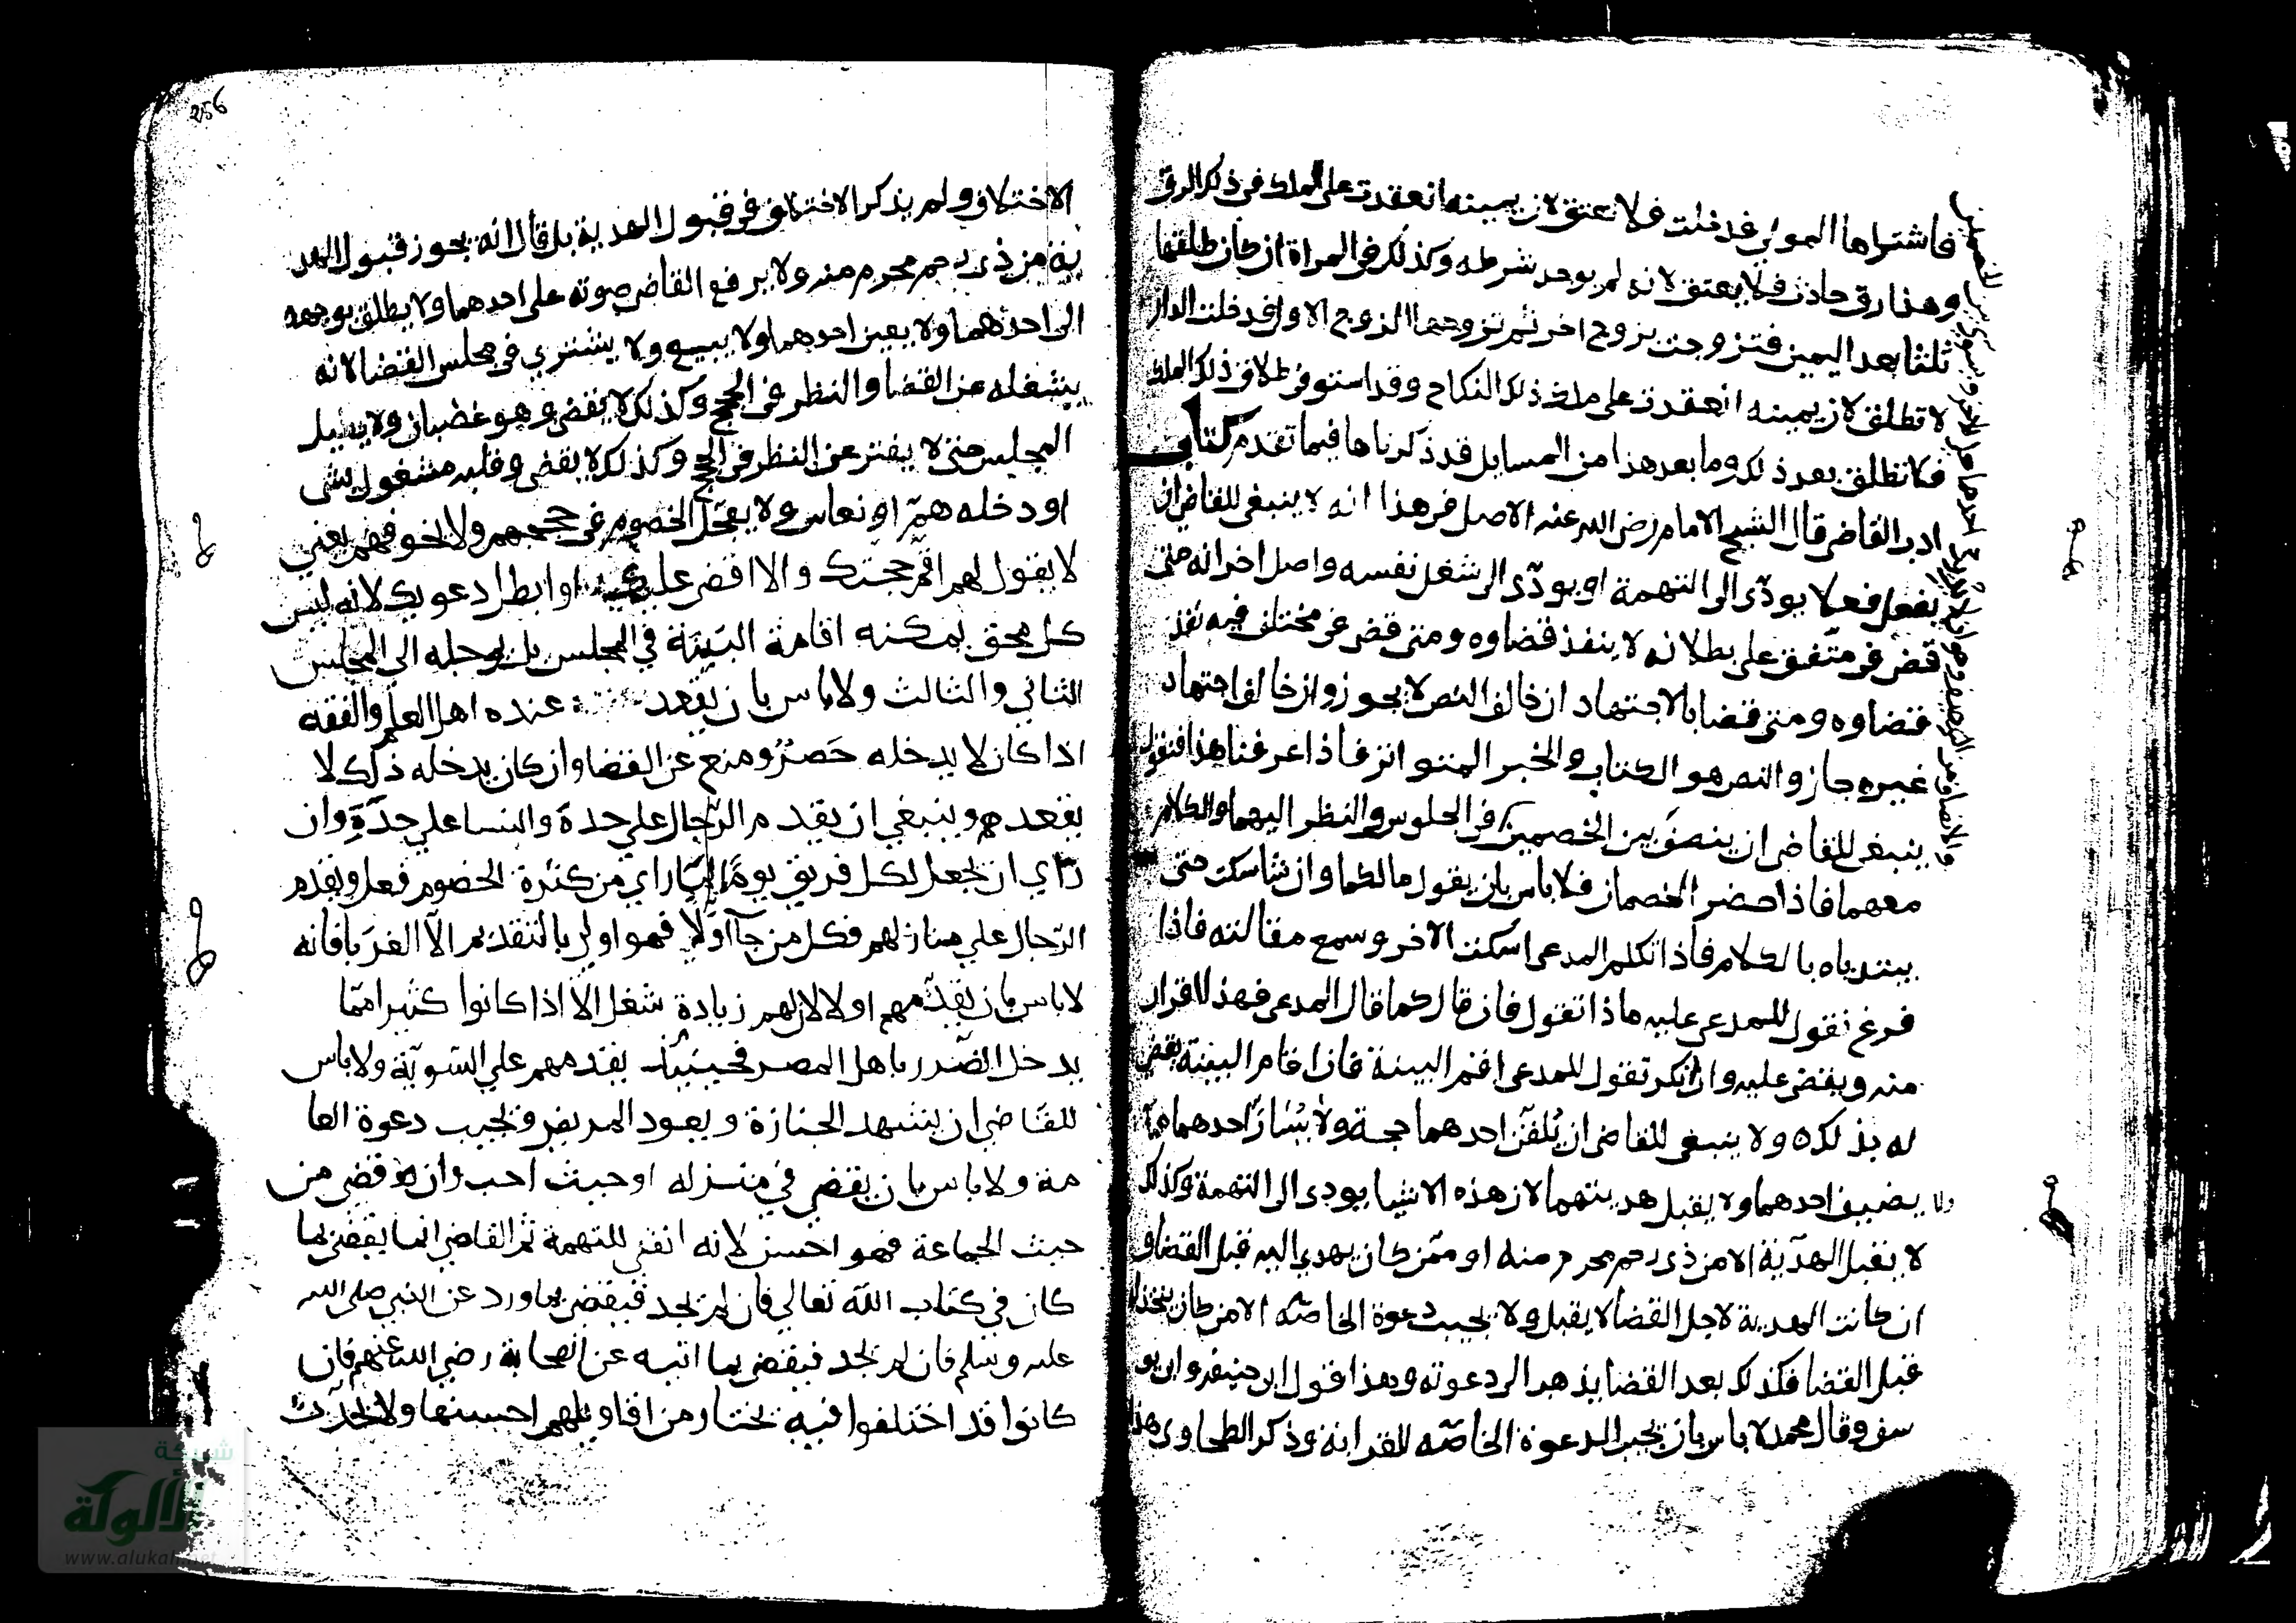 فاشتراها المولى فدخلت فلا تعتق لان يمينه انعقدت على الملك في ذلك الرق
وهذا رق حادث فلا يعتق لانه لم يوجد شرطه وكذلك في المراة ان كان طلقها
ثلثا بعد اليمين فتزوجت بزوج اخر ثم تزوجها الزوج الاول فدخلت الدار
لا تطلق لان يمينه انعقدت على ملك ذلك النكاح وقد استوفى طلاق ذلك الملك
فلا تطلق بعد ذلك وما بعد هذا من المسايل قد ذكرناها فيما تقدم كتاب
ادب القاضي قال الشيخ الامام رضي الله عنه الاصل في هذا انه لا ينبغي للقاضي ان
يفعل فعلا يودّى الى التهمة او يودّى الى شغل نفسه واصل اخر انه متى
قضى في متّفق على بطلانه لا ينفذ قضاوه ومتى قضى في مختلف فيه نفذ
قضاوه ومتى قضا بالاجتهاد ان خالف النص لا يجوز وان خالف اجتهاد
غيره جاز والنص هو الكتاب والخبر المتواتر فاذا عرفنا هذا فنقول
ينبغي للقاضي ان ينصف بين الخصمين في الجلوس والنظر اليهما والكلام
معهما فاذا حضر الخصمان فلا باس بان يقول ما لكما وان شا سكت حتى
يبتدياه بالكلام فاذا تكلم المدعى اسكت الاخر وسمع مقالته فاذا
فرغ نقول للمدعى عليه ماذا تقول فان قال كما قال المدعى فهذا اقرار
منه ويقضى عليه وان انكر تقول للمدعى اقم البينة فاذا اقام البينة يقضى
له بذلك ولا ينبغي للقاضي ان يُلقّن احدهما حجة ولا يُسَارّ احدهما
ولا يضيف احدهما ولا يقبل هديتهما لان هذه الاشيا يودى الى التهمة وكذلك
لا يقبل الهديّة الا من ذى رحم محرم منه او ممّن كان يهدي اليه قبل القضا و
ان كانت الهدية لاجل القضا لا يقبل ولا يجيب دعوة الخاصّه الا من كان يتخذ
قبل القضا فكذلك بعد القضا يذهب الى دعوته وهذا قول ابي حنيفة وابي يو
سف وقال محمد لا باس بان يجيب الدعوة الخاصّه للقرابة وذكر الطحاوي هذا
256
الاختلاف ولم يذكر الاختلاف في قبول الهدية بل قال انه يجوز قبول الهد
ية من ذي رحم محرم منه ولا يرفع القاضي صوته على احدهما ولا يطلق بوجهه
الى احدهما ولا يعين احدهما ولا يبيع ولا يشتري في مجلس القضا لانه
يشغله عن القضا والنظر في الحجج وكذلك لا يقضي وهو غضبان ولا يطيل
المجلس حتى لا يفتر عن النظر في الحجج وكذلك لا يقضي وقلبه مشغول بشي
او دخله همّ او نعاس ولا يعجّل الخصوم في حججهم ولا يخوفهم يعني
لا يقول لهم اقم حجتك والا اقضى عليك او ابطل دعويك لانه ليس
كل محق يمكنه اقامة البيّنة في المجلس بل يوجله الى المجلس
الثاني والثالث ولا باس بان يقعد عنده اهل العلم والفقه
اذا كان لا يدخله حَصَرٌ ومنع عن القضا وان كان يدخله ذلك لا
يقعدهم وينبغي ان يقدم الرّجال على حدة والنسا على حِدَةٍ وان
رَاي ان يجعل لكل فريق يومًا لما راي من كثرة الخصوم فعل ويقدم
الرّجال على منازلهم فكل من جآ اوّلا فهو اولى بالتقديم الّا الغربآ فانه
لا باس بان يقدّمهم اولا لان لهم زيادة شغل الا اذا كانوا كثيرا ممّا
يدخل الضّرر باهل المصر فحينئذ يقدمهم على السّويّة ولا باس
للقاضي ان يشهد الجنازة ويعود المريض ويجيب دعوة العا
مة ولا باس بان يقضي في منزله او حيث احب وان قضى من
حيث الجماعة فهو احسن لانه انفى للتهمة ثم القاضي انما يقضي بما
كان في كتاب الله تعالى فان لم يجد فيقضي بما ورد عن النبي صلى الله
عليه وسلم فان لم يجد فيقضي بما اتيه عن الصحابة رضي الله عنهم فان
كانوا قد اختلفوا فيه يختار من اقاويلهم احسنها ولا يحدث
شبكة
الألوكة
www.alukah.net